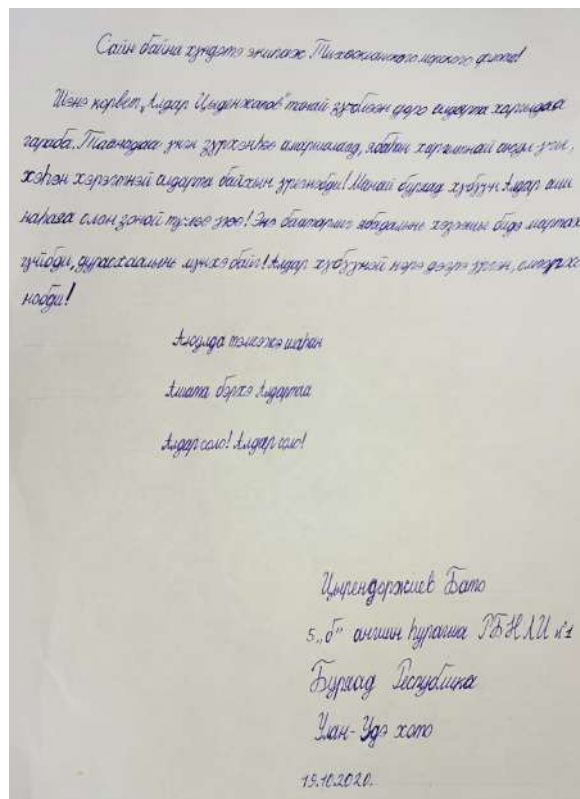 Сайн байна хүндэтэ экипаж Тихоокеанского морского флота!
Шэнэ корвет "Алдар Цыденжапов" танай зүблөөн дээрэ алдарта харгыдаа
гараба. Танадаа үнэн зүрхэнһөө амаршалаад, ябаһан харгытнай аюул үгы,
хэһэн хэрэгтнэй алдарта байхын үреэнэбди! Манай буряад хүбүүн Алдар ами
наһаяа олон зоной түлөө үгөө! Энэ баатарлиг ябадалынь хэзээшье бидэ мартаха
гүйбди, дурасхаалынь мүнхэ байг! Алдар хүбүүнэй нэрэ дээрэ үргэн, омогорхо
нобди!
Аюулда тэмсэжэ шадаһан
Ашата бэрхэ Алдартаа
Алдар соло! Алдар соло!
Цырендоржиев Бато
5 „б" ангиин һурагша РБНЛИ №1
Буряад Республика
Улан-Удэ хото
19.10.2020.